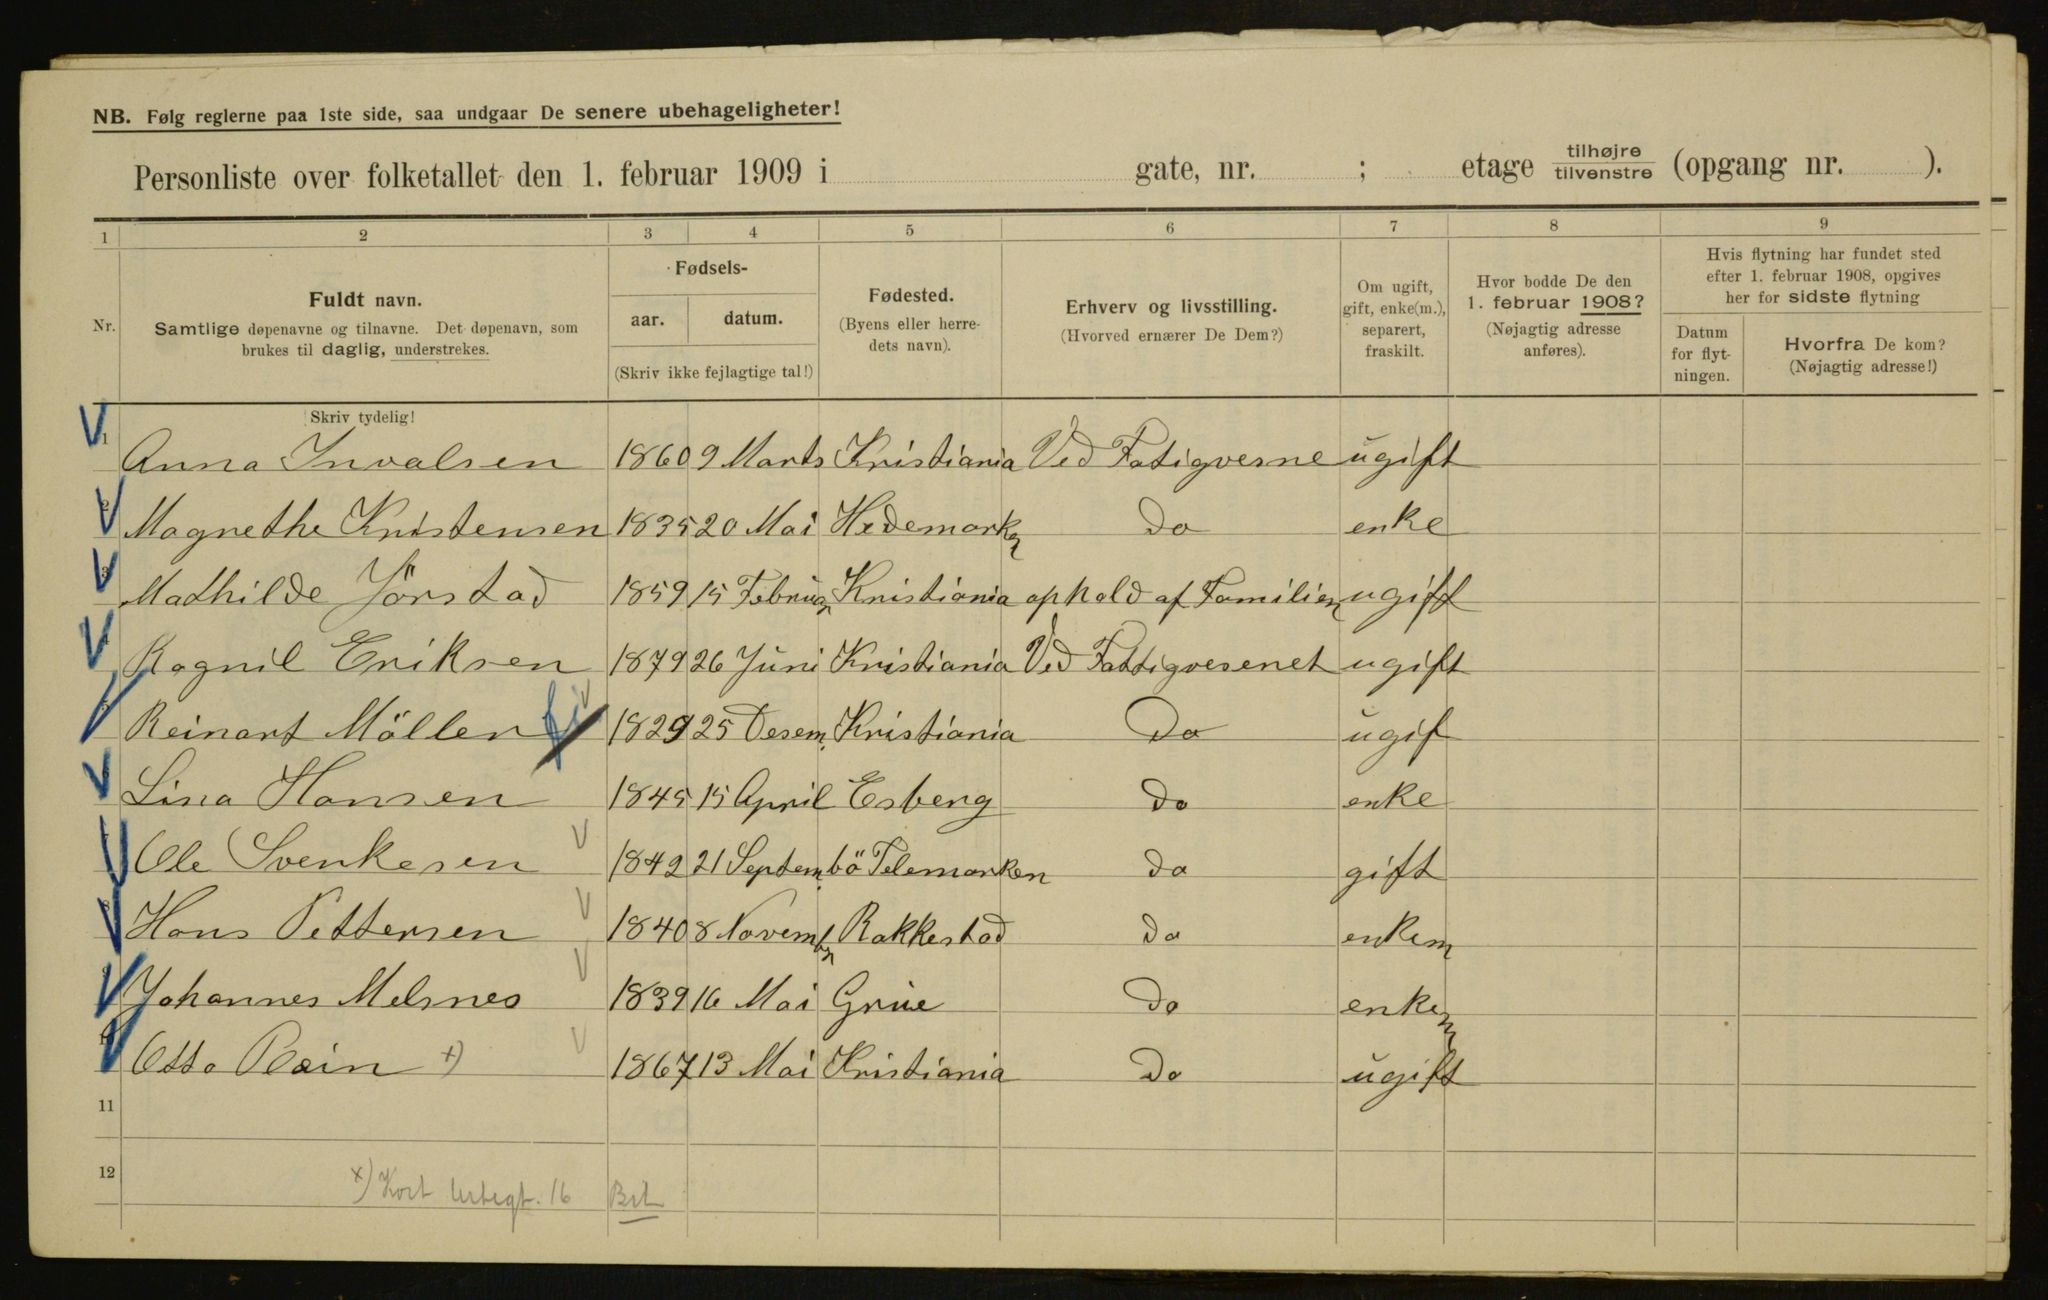 NB. Følg reglerne paa 1ste side, saa undgaar De senere ubehageligheter!
Personliste over folketallet den 1. februar 1909 i gate, nr. ; etage tilhøjre tilvenstre (opgang nr. ).
1 2 3 4 5 6 7 8 9
Nr.
Fuldt navn.
Samtlige døpenavne og tilnavne. Det døpenavn, som
brukes til daglig, understrekes.
Fødsels-
aar. datum.
(Skriv ikke fejlagtige tal!)
Fødested.
(Byens eller herre-
dets navn).
Erhverv og livsstilling.
(Hvorved ernærer De Dem?)
Om ugift,
gift, enke(m.),
separert,
fraskilt.
Hvor bodde De den
1. februar 1908?
(Nøjagtig adresse
anføres).
Hvis flytning har fundet sted
efter 1. februar 1908, opgives
her for sidste flytning
Datum
for flyt-
ningen.
Hvorfra De kom?
(Nøjagtig adresse!)
Skriv tydelig!
1 Anna Invalsen 1860 9 Marts Kristiania Ved Fatigvesne ugift
2 Magnethe Kristensen 1835 20 Mai Hedemarken do enke
3 Mathilde Jörstad 1859 15 Februar Kristiania ophold af Familien ugift
4 Ragnil Eriksen 1879 26 Juni Kristiania Ved Fattigvesenet ugift
5 Reinart Möller 1829 25 Desem. Kristiania Do ugif
Lina Hansen 1845 15 April Esberg do enke
7 Ole Svenkesen 1842 21 Septem. bö Telemarken do gift
8 Hans Pettersen 1840 8 November Rakkestad do enkem
9 Johannes Melsnes 1839 16 Mai Grue do enkem
10 Otto Rein +) 1867 13 Mai Kristiania do ugift
11
12
×) Kort 16